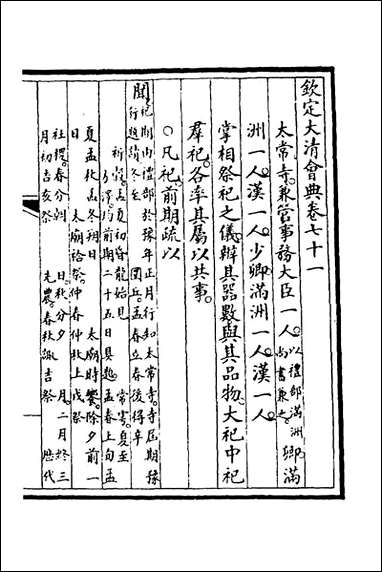 欽定大清會典卷七十一
太常寺兼管事務大臣一人以禮部滿洲尚書兼之卿滿
洲一人漢一人少卿滿洲一人漢一人
掌相祭祀之儀辦其器數與其品物大祀中祀
羣祀各率其屬以共事
○凡祀前期疏以
聞祀期由禮部於豫年正月行知太常寺寺屆期豫
行題請冬至 圜丘孟春立春後得辛
祈穀孟夏初昏龍始見 常雩夏至
方澤均前期二十五日具題孟春上旬孟
夏孟秋孟冬朔日 太廟時饗除夕前一
日 太廟祫祭仲春仲秋上戊祭
社稷春分朝 日秋分夕 月二月終三
月初吉亥祭 先農春秋諏吉祭 歷代